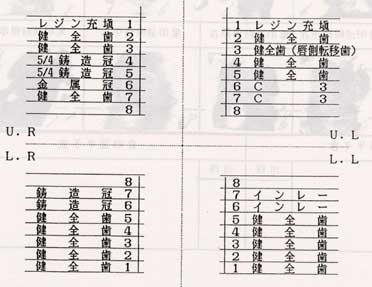 レジン充塡 1
健全歯 2
健全歯 3
5/4鋳造冠 4
5/4鋳造冠 5
金属冠 6
健全歯 7
8
1 レジン充塡
2 健全歯
3 健全歯(唇側転移歯)
4 健全歯
5 健全歯
6 C 3
7 C 3
8
U.R
U.L
L.R
L.L
8
鋳造冠 7
鋳造冠 6
健全歯 5
健全歯 4
健全歯 3
健全歯 2
健全歯 1
8
7 インレー
6 インレー
5 健全歯
4 健全歯
3 健全歯
2 健全歯
1 健全歯